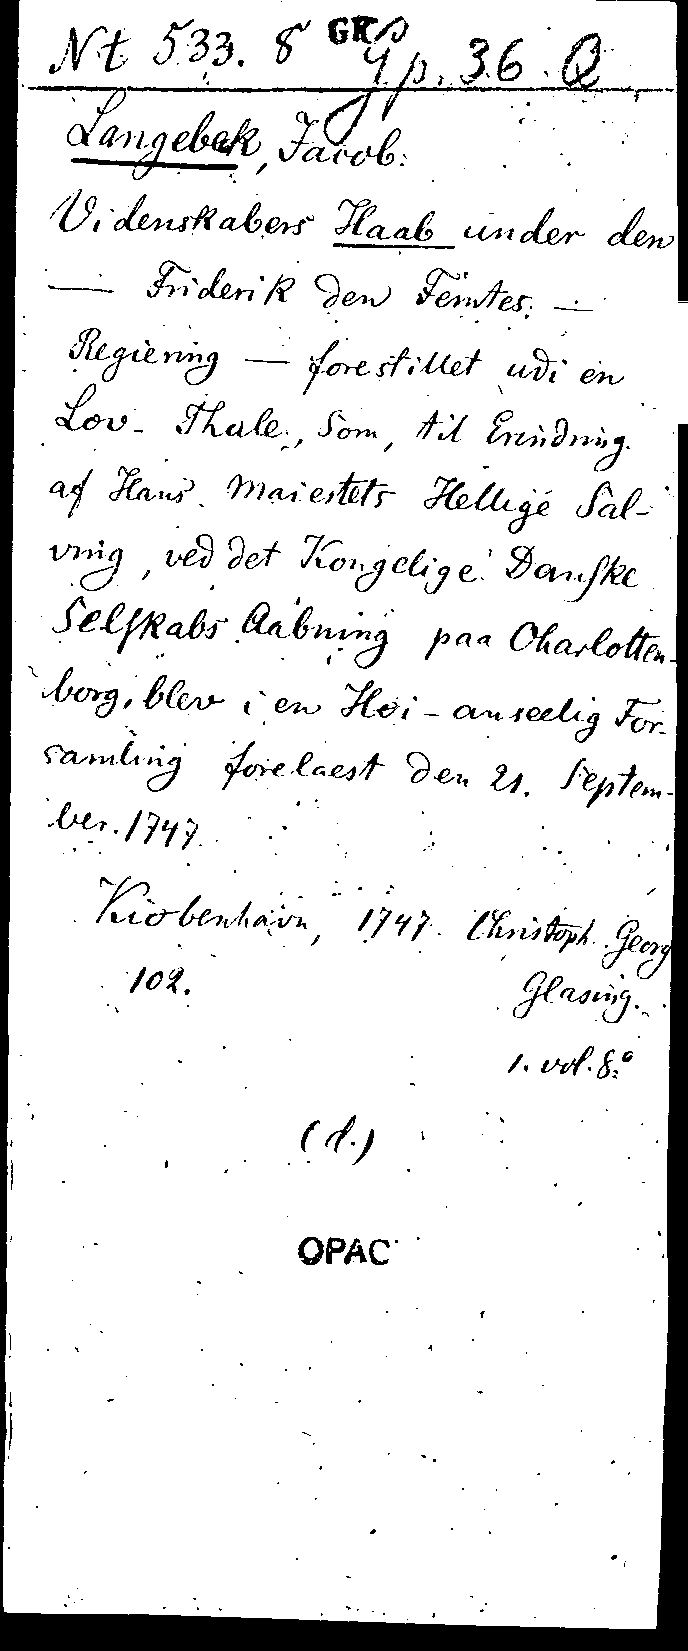 Nt 533. 8 GRS g p. 36. Q
Langebek, Jacob:
Videnskabers Haab under den
— Friderik den Femtes. —
Regiering — forestillet udi en
Lov- Thale, Som, til Erindring
af Hans Maiestets Hellige Sal-
ving, ved det Kongelige Danſke
Selſkabs Aabning paa Charlotten-
borg, blev i en Høi-anseelig For-
samling forelaest den 21. Septem-
ber. 1747
Kiobenhavn, 1747 Christoph. Georg
102. Glasing.
1. vol. 8.º
(d.)
OPAC